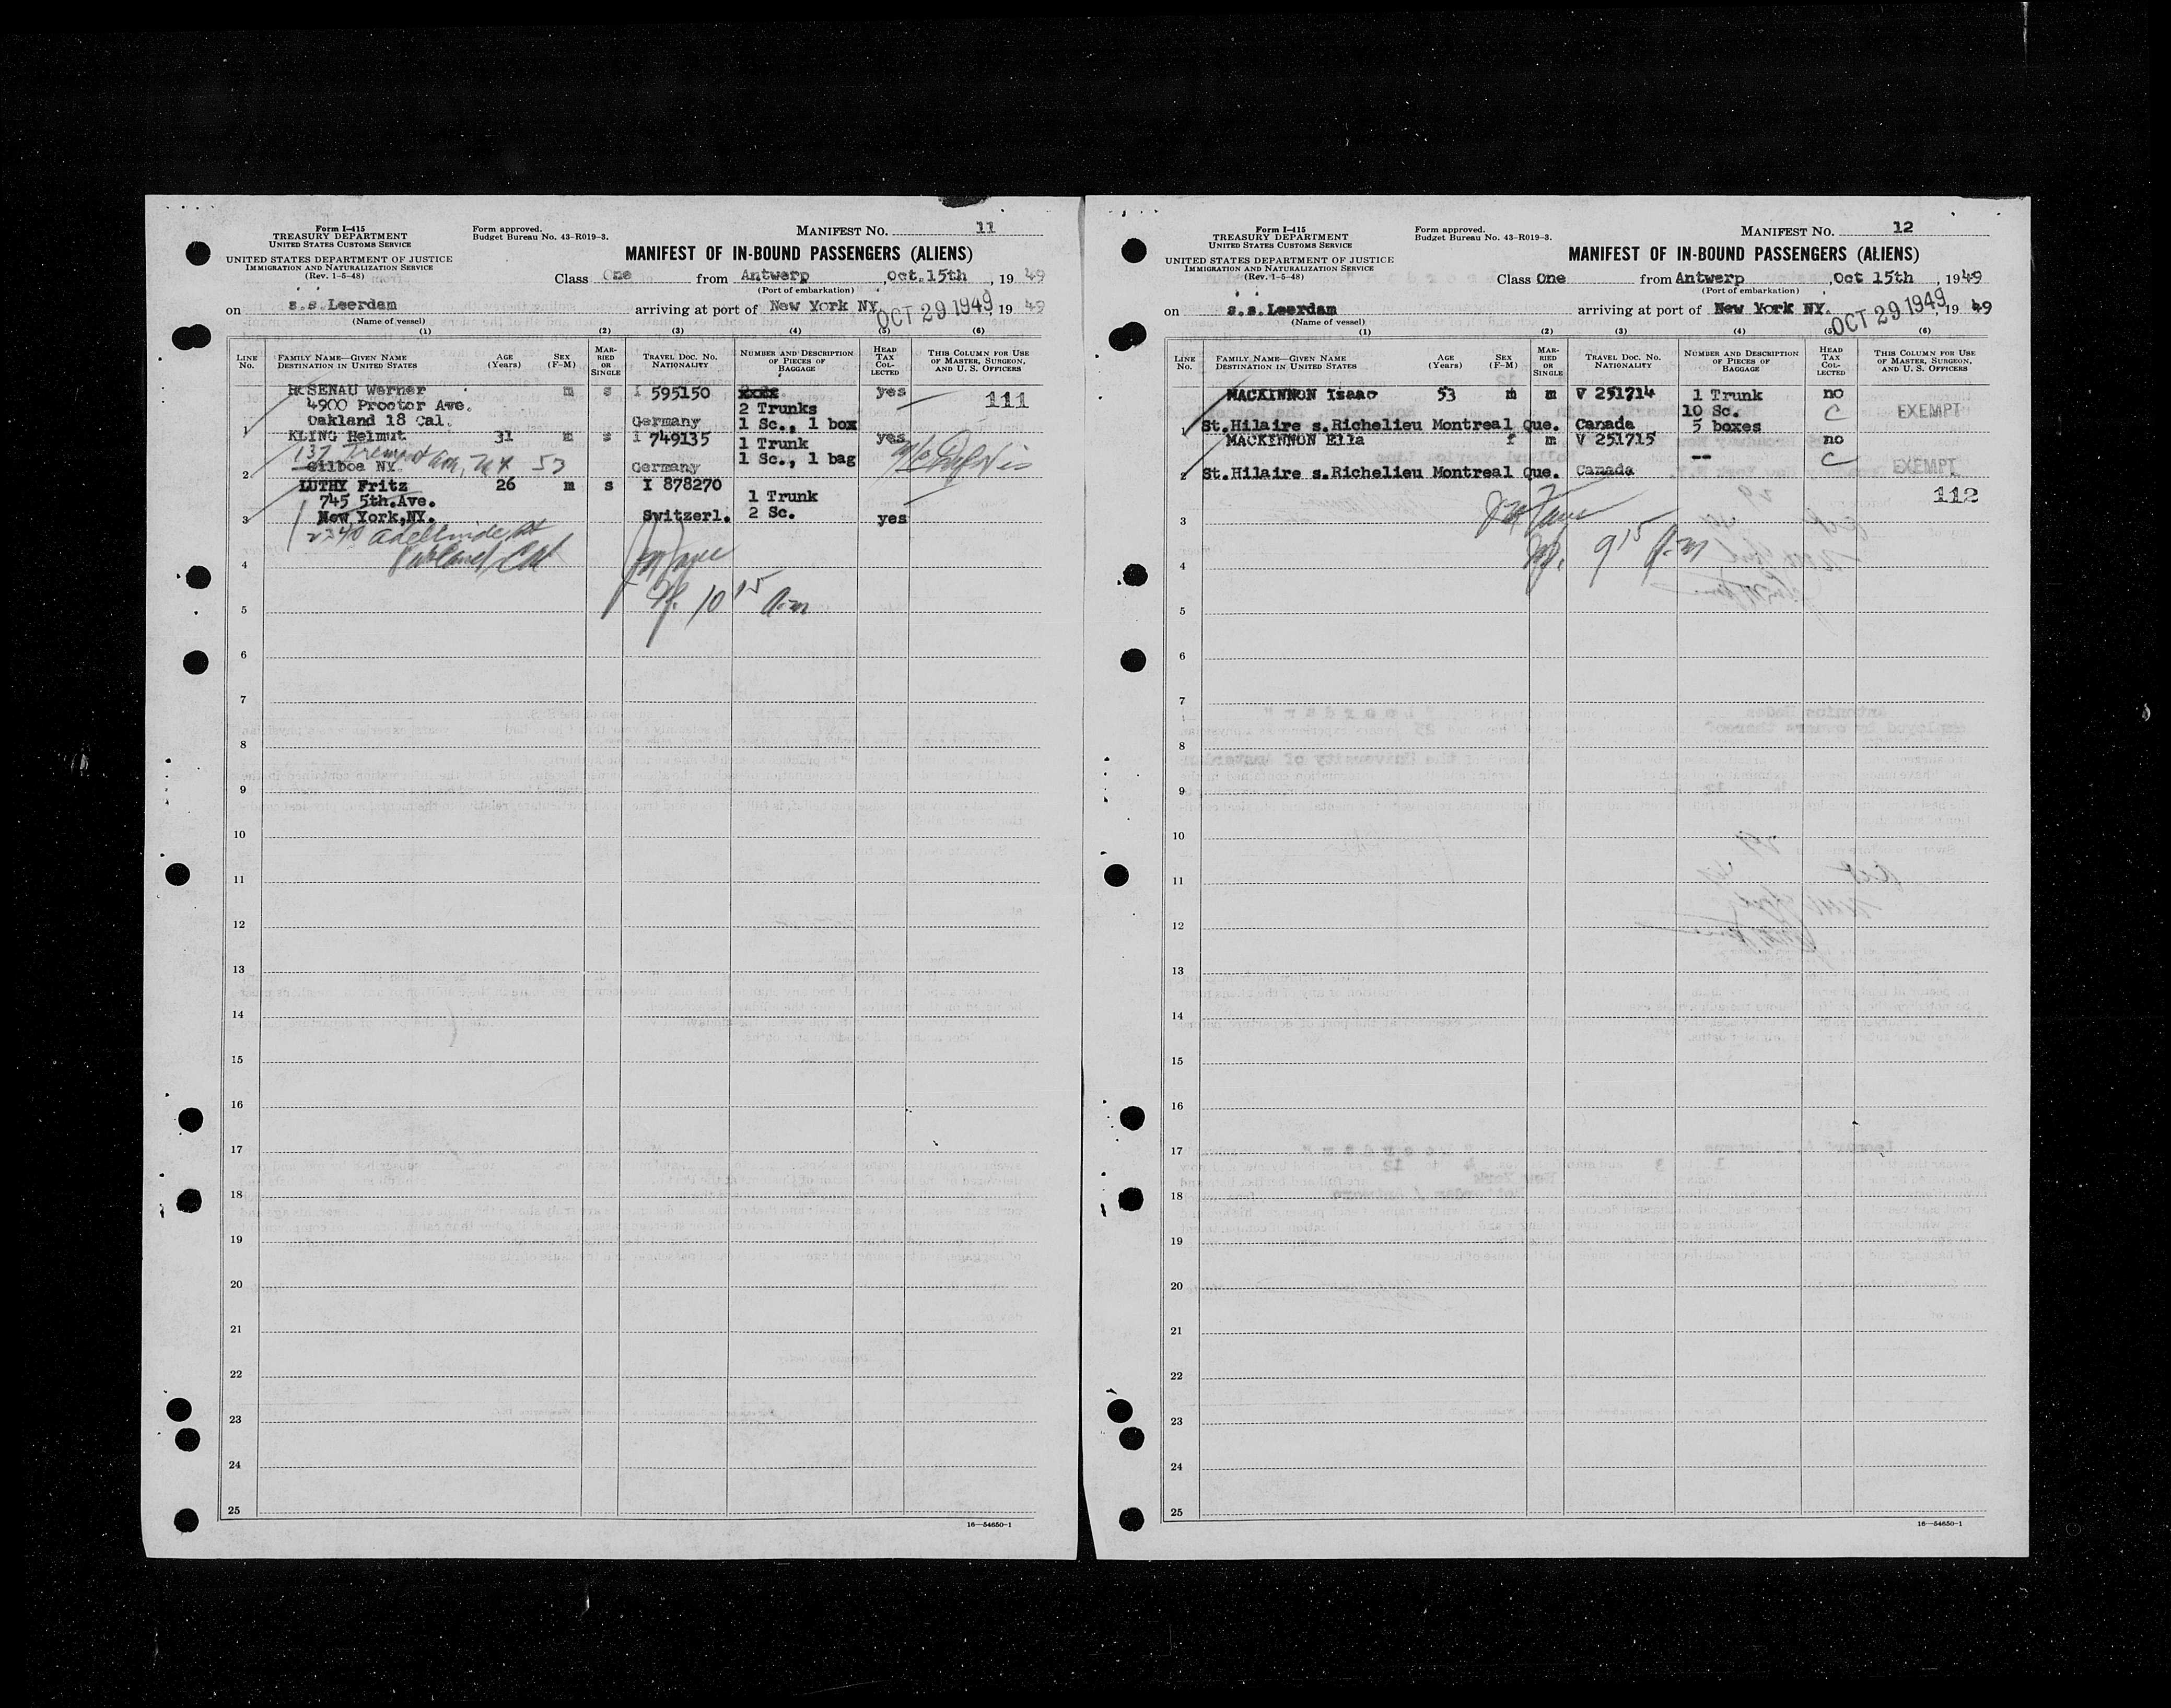 Form I-415
TREASURY DEPARTMENT
UNITED STATES CUSTOMS SERVICE
UNITED STATES DEPARTMENT OF JUSTICE
IMMIGRATION AND NATURALIZATION SERVICE
(Rev. 1-5-48)
Form approved.
Budget Bureau No. 43-R019-3.
MANIFEST No. 11
MANIFEST OF IN-BOUND PASSENGERS (ALIENS)
Class One from Antwerp, Oct.15th, 19 49
(Port of embarkation)
on s.s. Leerdam arriving at port of New York NY. OCT 29 1949, 19 49
(Name of vessel)
(1) (2) (3) (4) (5) (6)
LINE No. FAMILY NAME—GIVEN NAME DESTINATION IN UNITED STATES AGE (Years) SEX (F-M) MARRIED OR SINGLE TRAVEL DOC. No. NATIONALITY NUMBER AND DESCRIPTION OF PIECES OF BAGGAGE HEAD TAX COLLECTED THIS COLUMN FOR USE OF MASTER, SURGEON, AND U. S. OFFICERS
ROSENAU Werner m s I 595150 xxxx yes 111
4900 Proctor Ave. 2 Trunks
1 Oakland 18 Cal. Germany 1 Sc., 1 box
KLING Helmut 31 m s I 749135 1 Trunk yes
137 Ave, NY 53 1 Sc., 1 bag
2 Gilboa NY. Germany
LUTHY Fritz 26 m s I 878270
745 5th.Ave. 1 Trunk
3 New York,NY. Switzerl. 2 Sc. yes
Cal
4
10 15 a.m
5
6
7
8
9
10
11
12
13
14
15
16
17
18
19
20
21
22
23
24
25
16—54650-1
Form I-415
TREASURY DEPARTMENT
UNITED STATES CUSTOMS SERVICE
UNITED STATES DEPARTMENT OF JUSTICE
IMMIGRATION AND NATURALIZATION SERVICE
(Rev. 1-5-48)
Form approved.
Budget Bureau No. 43-R019-3.
MANIFEST No. 12
MANIFEST OF IN-BOUND PASSENGERS (ALIENS)
Class One from Antwerp, Oct 15th, 19 49
(Port of embarkation)
on s.s.Leerdam arriving at port of New York NY. OCT 29 1949, 19 49
(Name of vessel)
(1) (2) (3) (4) (5) (6)
LINE No. FAMILY NAME—GIVEN NAME DESTINATION IN UNITED STATES AGE (Years) SEX (F-M) MARRIED OR SINGLE TRAVEL DOC. No. NATIONALITY NUMBER AND DESCRIPTION OF PIECES OF BAGGAGE HEAD TAX COLLECTED THIS COLUMN FOR USE OF MASTER, SURGEON, AND U. S. OFFICERS
MACKINNON Isaac 53 m m V 251714 1 Trunk no
10 Sc. C EXEMPT
1 St.Hilaire s.Richelieu Montreal Que. Canada 5 boxes
MACKINNON Ella f m V 251715 no
-- C
2 St.Hilaire s.Richelieu Montreal Que. Canada EXEMPT
112
3
9 15 a.m
4
5
6
7
8
9
10
11
12
13
14
15
16
17
18
19
20
21
22
23
24
25
16—54650-1